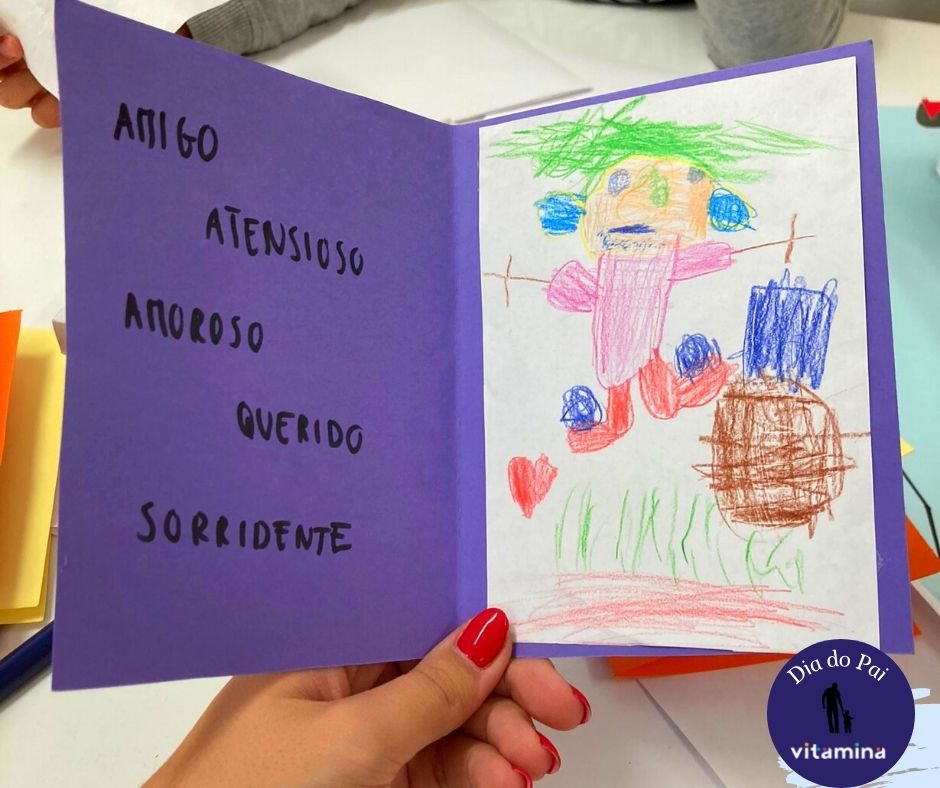 AMIGO
ATENSIOSO
AMOROSO
QUERIDO
SORRIDENTE
Dia do Pai
vitamina